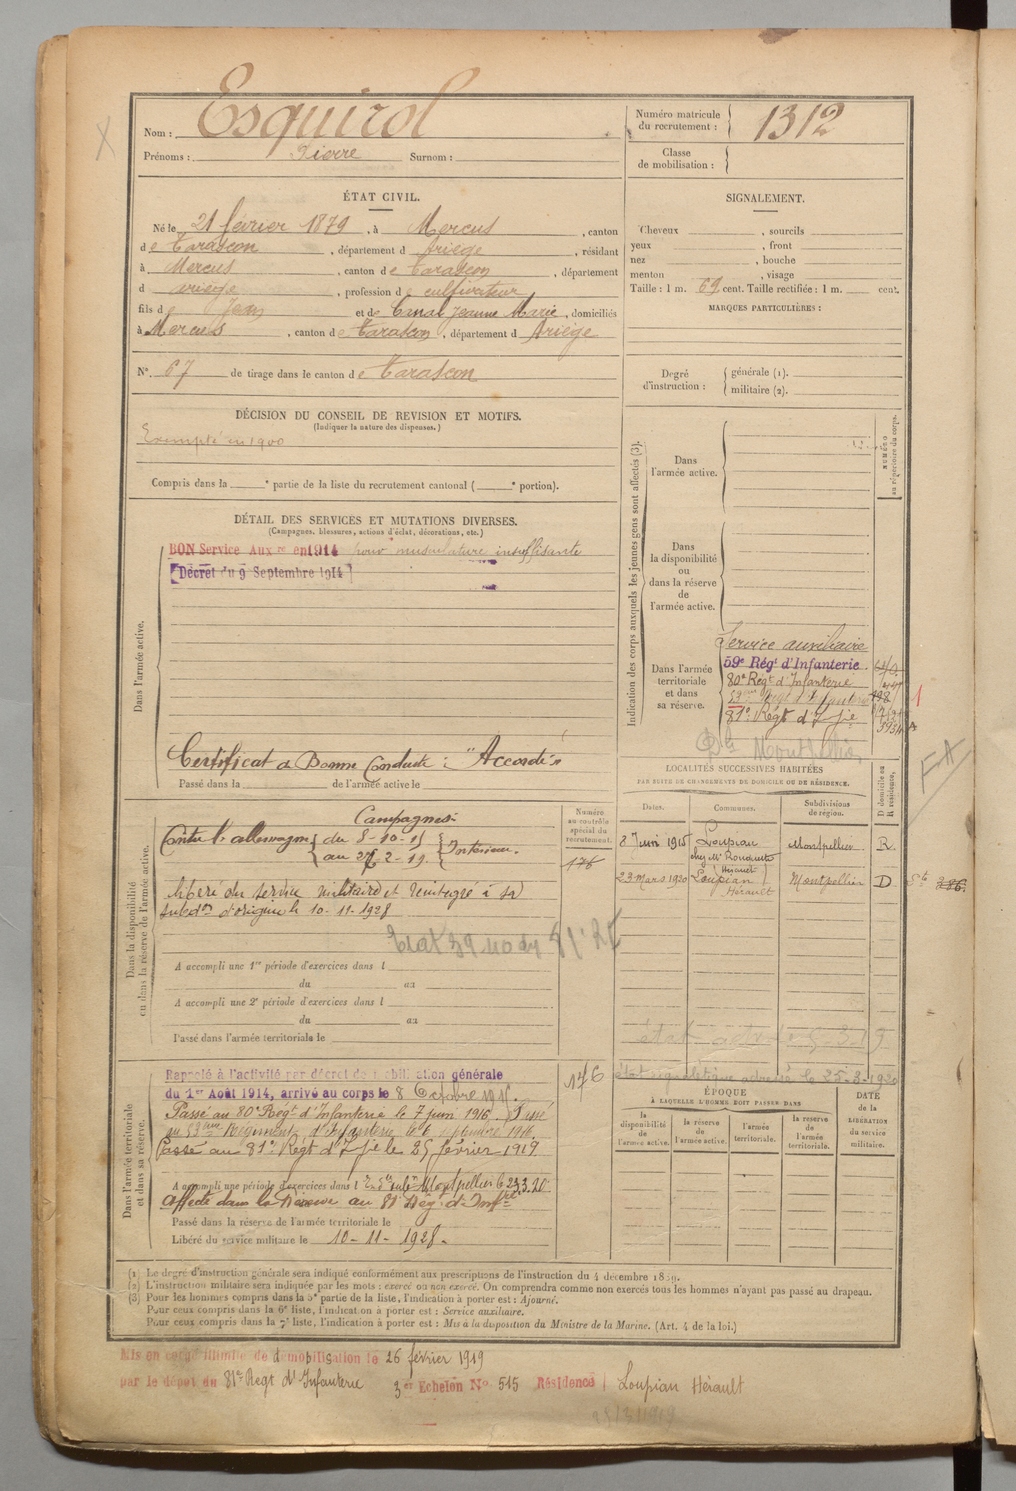 Nom : Esquirol
Prénoms : Pierre Surnom :
Numéro matricule
du recrutement : 1312
Classe
de mobilisation :
ÉTAT CIVIL.
Né le 21 février 1879, à Mercus, canton
de Tarascon, département d Ariège, résidant
à Mercus, canton de Tarascon, département
d Ariège, profession de cultivateur
fils de Jean et de Canal Jeanne Marie, domiciliés
à Mercus, canton de Tarascon, département d Ariège
N° 67 de tirage dans le canton de Tarascon
SIGNALEMENT.
Cheveux , sourcils
yeux , front
nez , bouche
menton , visage
Taille : 1 m. 69 cent. Taille rectifiée : 1 m. cent.
MARQUES PARTICULIÈRES :
Degré
d'instruction :
générale (1).
militaire (2).
DÉCISION DU CONSEIL DE REVISION ET MOTIFS.
(Indiquer la nature des dispenses.)
Exempté en 1900
Compris dans la e partie de la liste du recrutement cantonal ( e portion).
DÉTAIL DES SERVICES ET MUTATIONS DIVERSES.
(Campagnes, blessures, actions d'éclat, décorations, etc.)
Dans l'armée active.
BON Service Aux re en 1914 pour musculature insuffisante
Décret du 9 Septembre 1914
Certificat de Bonne Conduite : "Accordé"
Passé dans la de l'armée active le
Indication des corps auxquels les jeunes gens sont affectés (3).
NUMÉRO
au répertoire du corps.
Dans
l'armée active.
Dans
la disponibilité
ou
dans la réserve
de
l'armée active.
Dans l'armée
territoriale
et dans
sa réserve.
Service auxiliaire
59e Régt d'Infanterie
80e Régt d'Infanterie
81e Régt d'Ifie
Montpellier
FA
LOCALITÉS SUCCESSIVES HABITÉES
PAR SUITE DE CHANGEMENTS DE DOMICILE OU DE RÉSIDENCE.
D domicile ou
R résidence.
Dates. Communes. Subdivisions
de région.
8 Juin 1915 Loupian Montpellier R.
chez Mr
(Hérault)
23 mars 1920 Loupian Montpellier D
Hérault
Dans la disponibilité
ou dans la réserve de l'armée active.
Numéro
au contrôle
spécial du
recrutement.
176
Campagnes
Contre l'allemagne du 8-10-15
au 27-2-19. Intérieur.
libéré du service militaire et
subdon d'origine le 10-11-1928
A accompli une 1re période d'exercices dans l
du au
A accompli une 2e période d'exercices dans l
du au
Passé dans l'armée territoriale le
Dans l'armée territoriale
et dans sa réserve.
176
Rappelé à l'activité par décret de mobilisation générale
du 1er Août 1914, arrivé au corps le 8 Octobre 1915.
Passé au 80e Régt d'Infanterie le 7 juin 1916. Passé
au 59ème Régiment d'Infanterie le 6 septembre 1916.
Passé au 81e Régt d'Ifie le 25 février 1919
A accompli une période d'exercices dans l Montpellier le 23.3.20
Affecté dans la Réserve au 81e Régt d'Infie
Passé dans la réserve de l'armée territoriale le
Libéré du service militaire le 10-11-1928.
ÉPOQUE
À LAQUELLE L'HOMME DOIT PASSER DANS
la
disponibilité
de
l'armée active.
la réserve
de
l'armée active.
l'armée
territoriale.
la réserve
de
l'armée
territoriale.
DATE
de la
LIBÉRATION
du service
militaire.
(1) Le degré d'instruction générale sera indiqué conformément aux prescriptions de l'instruction du 4 décembre 1889.
(2) L'instruction militaire sera indiquée par les mots : exercé ou non exercé. On comprendra comme non exercés tous les hommes n'ayant pas passé au drapeau.
(3) Pour les hommes compris dans la 5e partie de la liste, l'indication à porter est : Ajourné.
Pour ceux compris dans la 6e liste, l'indication à porter est : Service auxiliaire.
Pour ceux compris dans la 7e liste, l'indication à porter est : Mis à la disposition du Ministre de la Marine. (Art. 4 de la loi.)
Mis en congé illimité de démobilisation le 26 février 1919
par le dépôt du 81e Régt d'Infanterie 3e Echelon No 515 Résidence Loupian Hérault